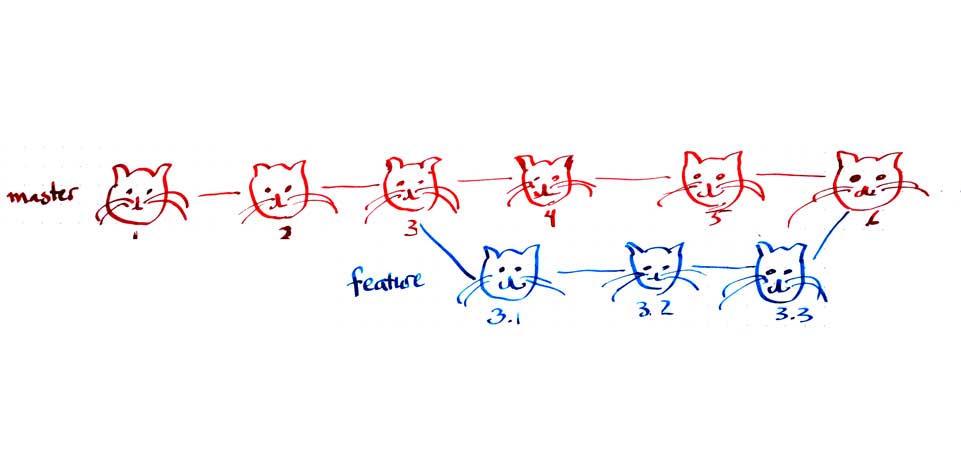 master
1 2 3 4 5 6
feature
3.1 3.2 3.3